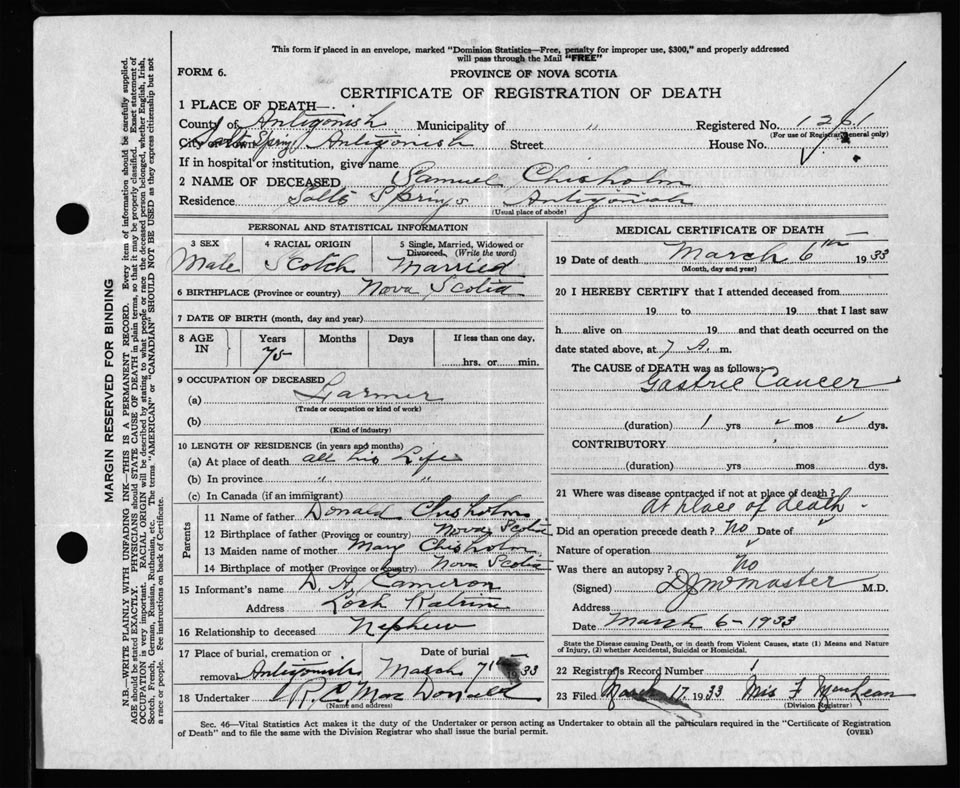 This form if placed in an envelope, marked "Dominion Statistics—Free, penalty for improper use, $300," and properly addressed
will pass through the Mail "FREE"
FORM 6.
PROVINCE OF NOVA SCOTIA
CERTIFICATE OF REGISTRATION OF DEATH
1 PLACE OF DEATH—
County of Antigonish Municipality of " Registered No. 1261
(For use of Registrar General only)
City or town Salt Springs Antigonish Street House No.
If in hospital or institution, give name
2 NAME OF DECEASED Samuel Chisholm
Residence Salts Springs Antigonish
(Usual place of abode)
PERSONAL AND STATISTICAL INFORMATION
3 SEX 4 RACIAL ORIGIN 5 Single, Married, Widowed or
Divorced. (Write the word)
Male Scotch Married
6 BIRTHPLACE (Province or country) Nova Scotia
7 DATE OF BIRTH (month, day and year)
8 AGE IN Years Months Days If less than one day,
75 hrs. or min.
9 OCCUPATION OF DECEASED
(a) Farmer
(Trade or occupation or kind of work)
(b)
(Kind of industry)
10 LENGTH OF RESIDENCE (in years and months)
(a) At place of death all his Life
(b) In province " "
(c) In Canada (if an immigrant)
Parents
11 Name of father Donald Chisholm
12 Birthplace of father (Province or country) Nova Scotia
13 Maiden name of mother Mary Chisholm
14 Birthplace of mother (Province or country) Nova Scotia
15 Informant's name D. A. Cameron
Address Loch Katrine
16 Relationship to deceased Nephew
17 Place of burial, cremation or Date of burial
removal Antigonish March 7th 1933
18 Undertaker R. C. MacDonald
(Name and address)
MEDICAL CERTIFICATE OF DEATH
19 Date of death March 6th 1933
(Month, day and year)
20 I HEREBY CERTIFY that I attended deceased from
19 to 19 that I last saw
h alive on 19 and that death occurred on the
date stated above, at 7 A. m.
The CAUSE of DEATH was as follows:
Gastric Cancer
(duration) 1 yrs mos dys.
CONTRIBUTORY
(duration) yrs. mos. dys.
21 Where was disease contracted if not at place of death?
at place of death.
Did an operation precede death? no Date of
Nature of operation
Was there an autopsy? no
(Signed) M.D.
Address
Date March 6-1933
State the Disease causing Death, or in death from Violent Causes, state (1) Means and Nature
of Injury, (2) whether Accidental, Suicidal or Homicidal.
22 Registrar's Record Number 1
23 Filed March 17 1933 Mis F
(Division Registrar)
Sec. 46—Vital Statistics Act makes it the duty of the Undertaker or person acting as Undertaker to obtain all the particulars required in the "Certificate of Registration
of Death" and to file the same with the Division Registrar who shall issue the burial permit. (OVER)
MARGIN RESERVED FOR BINDING
N.B.—WRITE PLAINLY WITH UNFADING INK—THIS IS A PERMANENT RECORD. Every item of information should be carefully supplied.
AGE should be stated EXACTLY. PHYSICIANS should STATE CAUSE OF DEATH in plain terms, so that it may be properly classified. Exact statement of
OCCUPATION is very important. RACIAL ORIGIN will be described by stating to what people or race the deceased person belonged, whether English, Irish,
Scotch, French, German, Russian, Ruthenian, etc. The terms "AMERICAN" or "CANADIAN" SHOULD NOT BE USED as they express citizenship but not
a race or people. See instructions on back of Certificate.